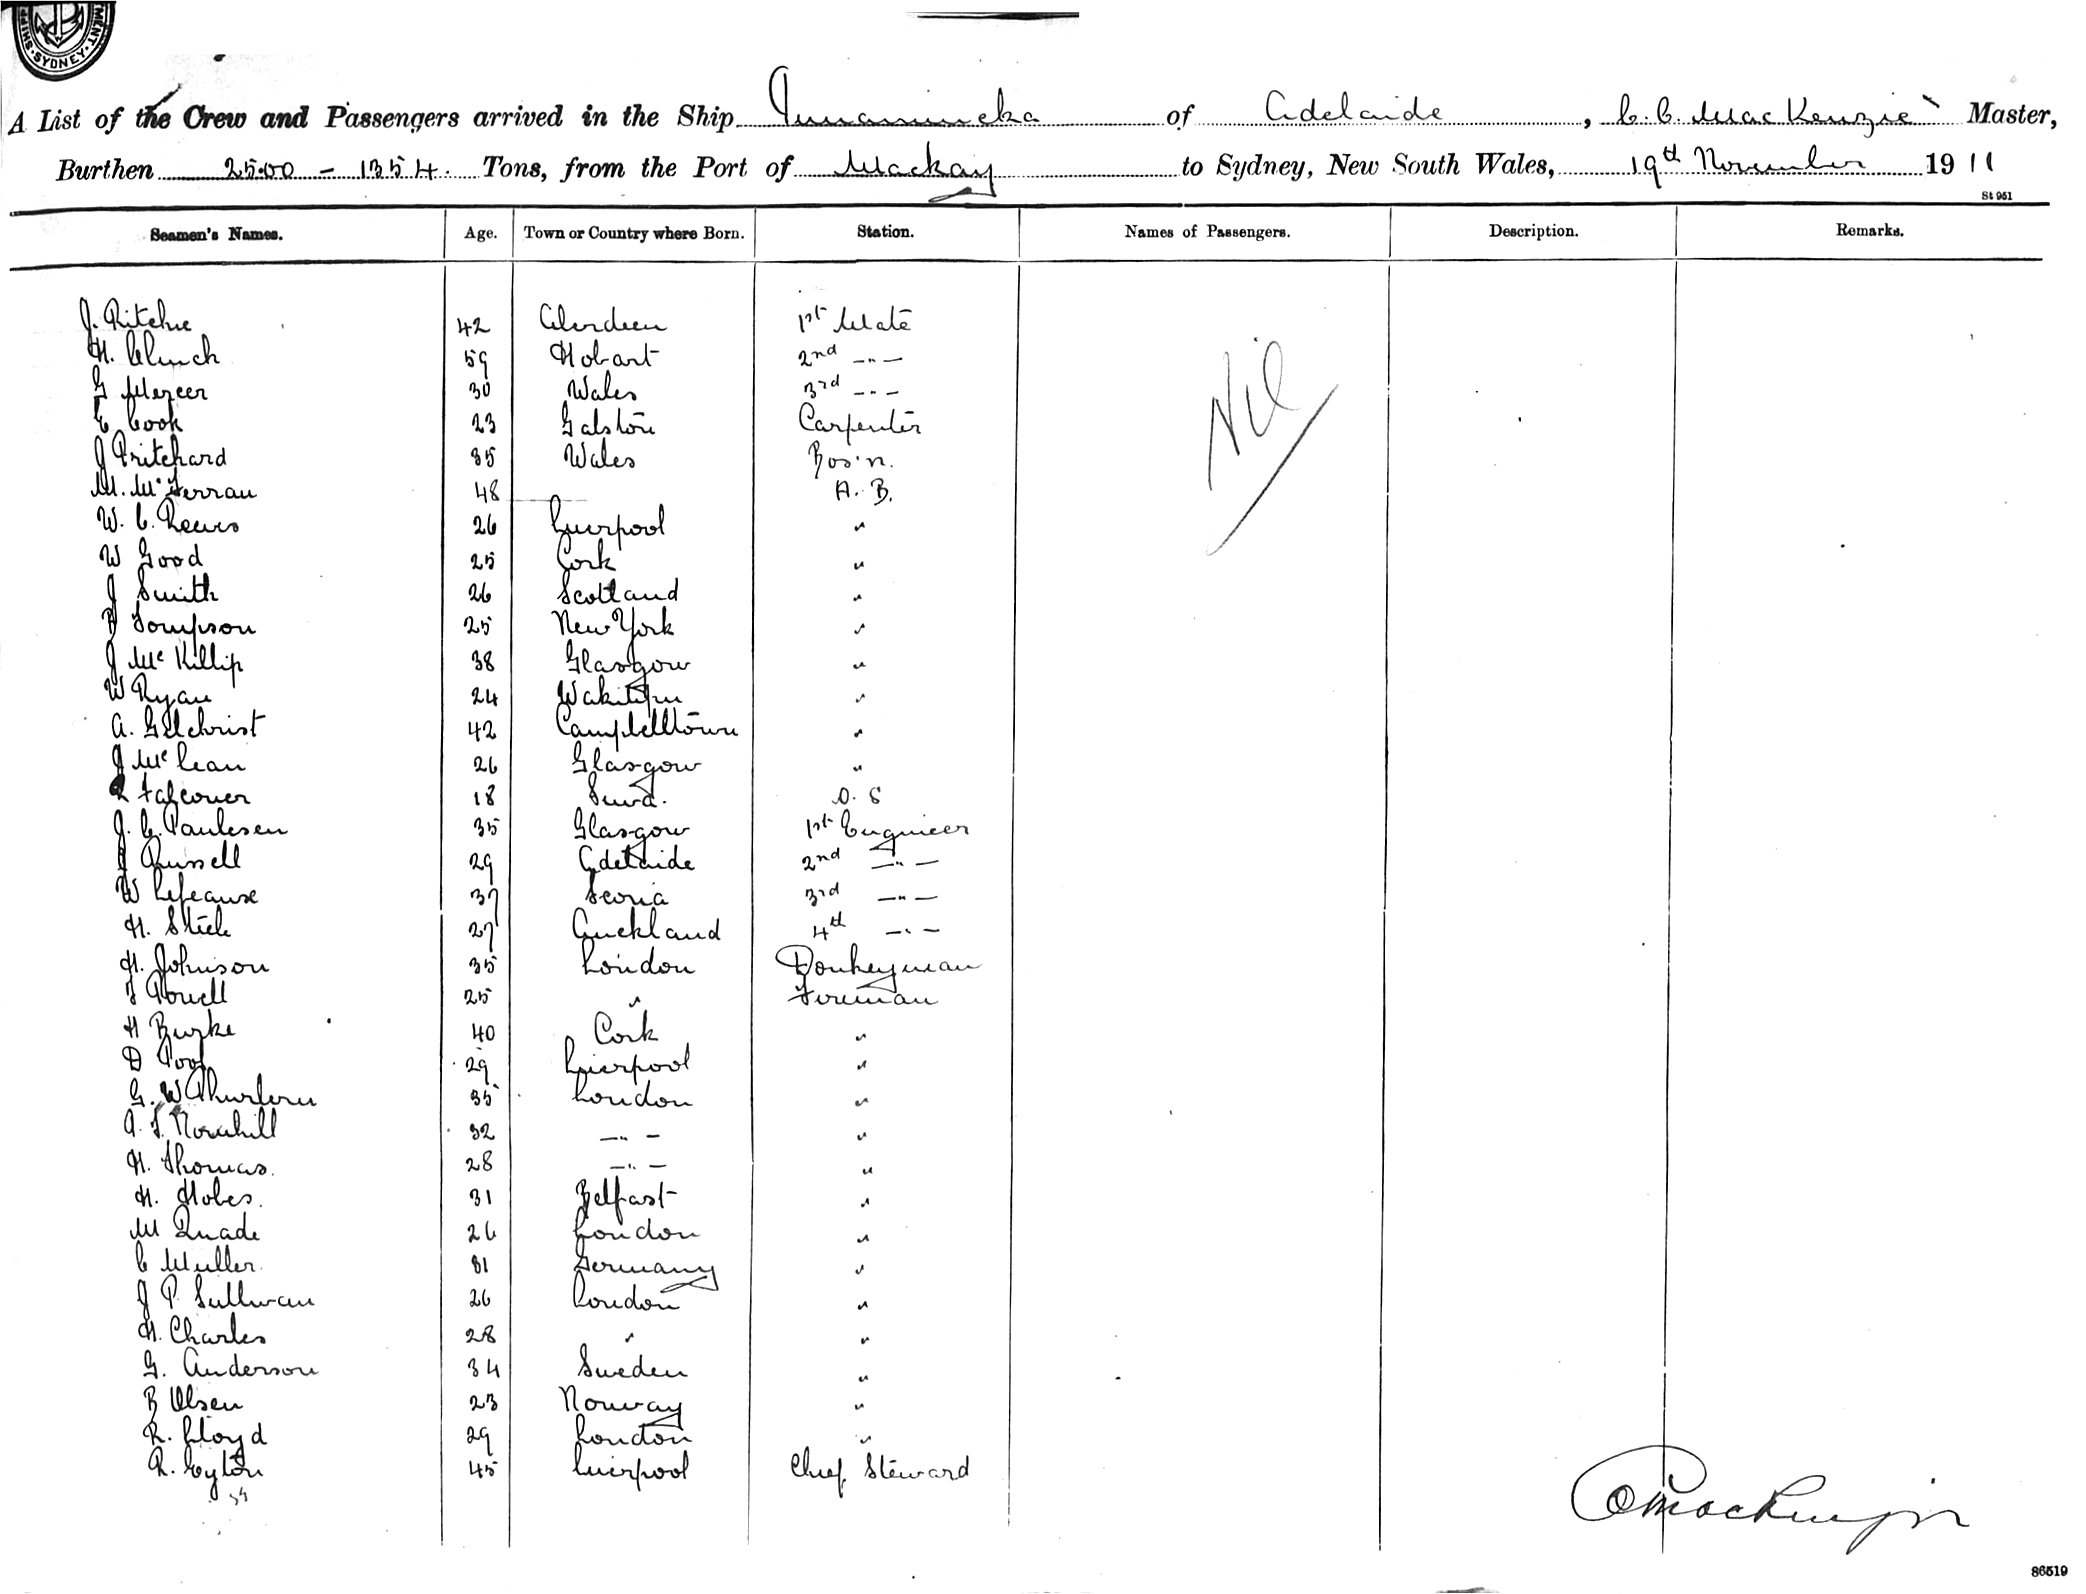 SHIP MENT. SYDNEY.
A List of the Crew and Passengers arrived in the Ship Innamincka of Adelaide, C. C. MacKenzie Master,
Burthen 2500 - 1354. Tons, from the Port of Mackay to Sydney, New South Wales, 19th November 1911
St 951
Seamen's Names. Age. Town or Country where Born. Station. Names of Passengers. Description. Remarks.
J. Ritchie 42 Aberdeen 1st Mate
H. Clinch 59 Hobart 2nd -"-
G Mercer 30 Wales 3rd -"-
E Cook 23 Galston Carpenter
J Pritchard 35 Wales Bos'n.
M. McFerran 48 A. B.
W. C. Reeves 26 Liverpool "
W Good 25 Cork "
J Smith 26 Scotland "
Tompson 25 New York "
J McKillip 38 Glasgow "
W Ryan 24 "
A. Gilchrist 42 Campbelltown "
J McLean 26 Glasgow "
R Falconer 18 Suva. O. S
J. C. Paulesen 35 Glasgow 1st Engineer
J Russell 29 Adelaide 2nd -"-
W 37 3rd -"-
H. Steele 27 Auckland 4th -"-
H. Johnson 35 London Donkeyman
F Powell 25 " Fireman
H Burke 40 Cork "
D Pool 29 Liverpool "
G. W 35 London "
A. 32 -"- "
H. Thomas. 28 -"- "
H. Hobes. 31 Belfast "
M Quade 26 London "
C Muller. 31 Germany "
J P Sullivan 26 London "
H. Charles 28 " "
G. Anderson 34 Sweden "
B Olsen 23 Norway "
R. Lloyd 29 London "
R. Cyton 45 Liverpool Chief Steward
Nil
86519